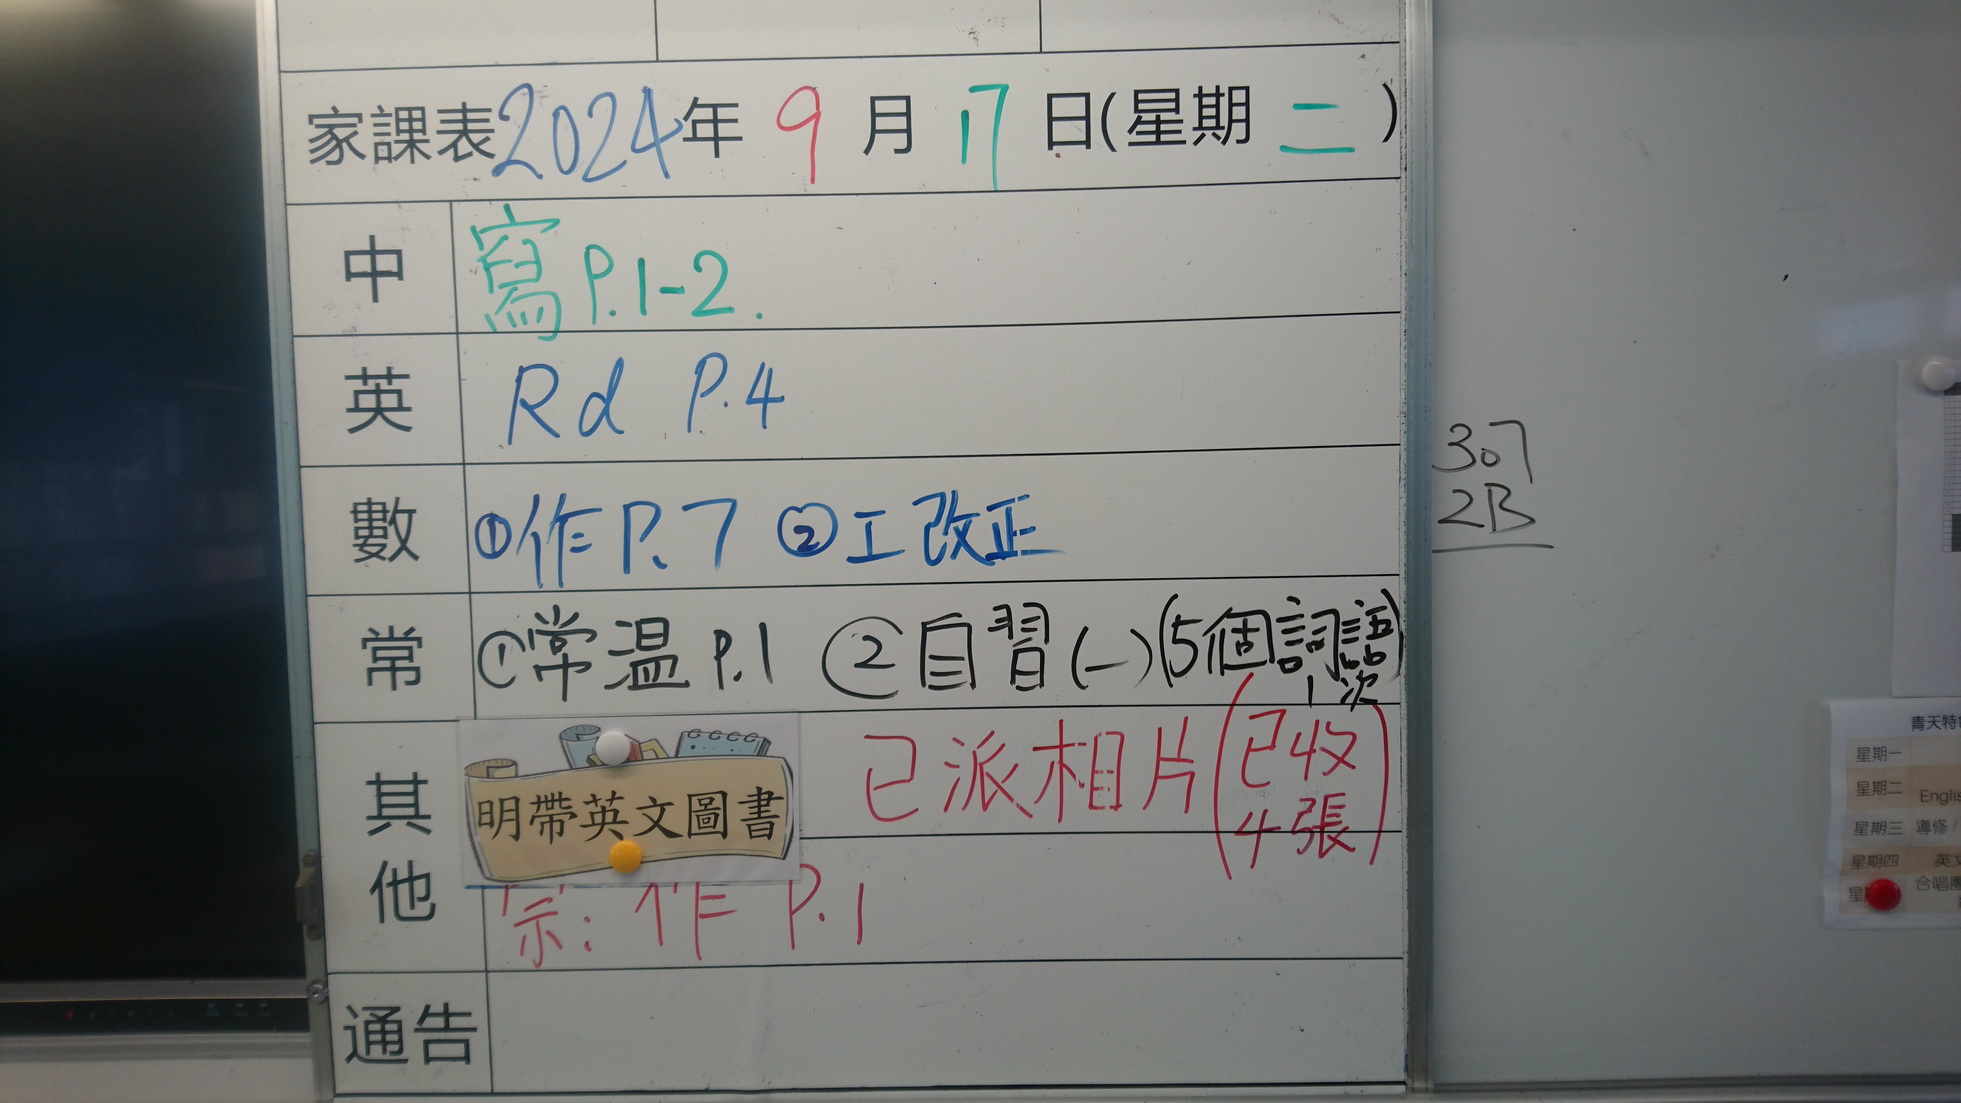 家課表2024年9月17日(星期二)
中 寫P.1-2.
英 Rd P.4
數 ①作P.7 ②工改正
常 ①常温P.1 ②自習(一)(5個詞語)
1次
其他
明帶英文圖書
已派相片(已收
4張)
示:作 P.1
通告
307
2B
青天特
星期一
星期二 Englis
星期三 導修/
星期四 英文
星 合唱團